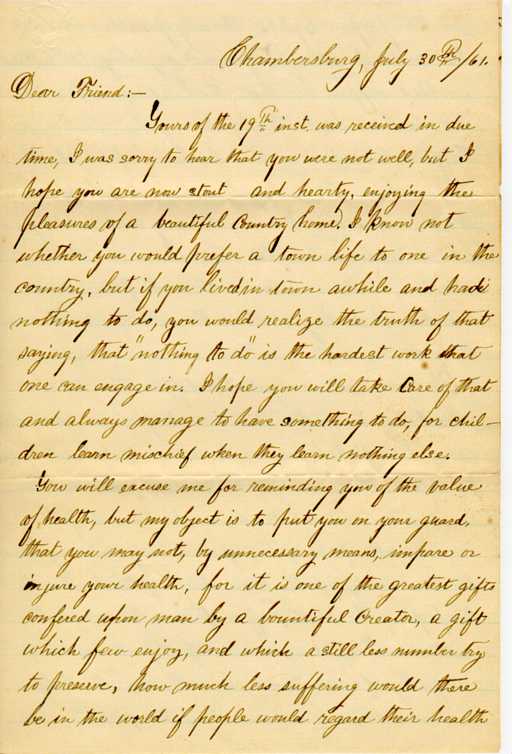 Chambersburg, July 30th/61.
Dear Friend:—
Yours of the 19th inst. was received in due
time, I was sorry to hear that you were not well, but I
hope you are now stout and hearty, enjoying the
pleasures of a beautiful country home. I know not
whether you would prefer a town life to one in the
country, but if you lived in town awhile and had
nothing to do, you would realize the truth of that
saying, that "nothing to do" is the hardest work that
one can engage in. I hope you will take care of that
and always manage to have something to do, for chil-
dren learn mischief when they learn nothing else.
You will excuse me for reminding you of the value
of health, but my object is to put you on your guard,
that you may not, by unnecessary means, impare or
injure your health, for it is one of the greatest gifts
confered upon man by a bountiful Creator, a gift
which few enjoy, and which a still less number try
to preserve, how much less suffering would there
be in the world if people would regard their health